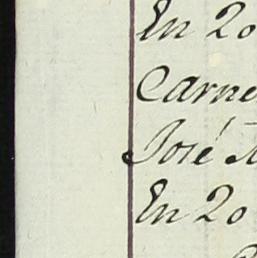 En 20
Carne
José
En 20